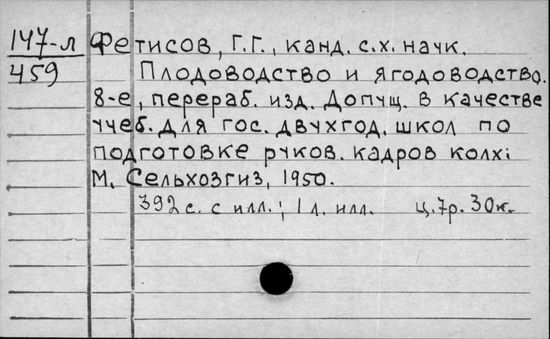 147-л Фетисов, Г.Г., канд. с.х. наук.
459 Плодоводство и ягодоводство.
8-е, перераб. изд. Допущ. в качестве
учеб. для гос. двухгод. школ по
подготовке руков. кадров колх:
М. Сельхозгиз, 1950.
392 с. с илл.; 1 л. илл. ц. 7р. 30к.